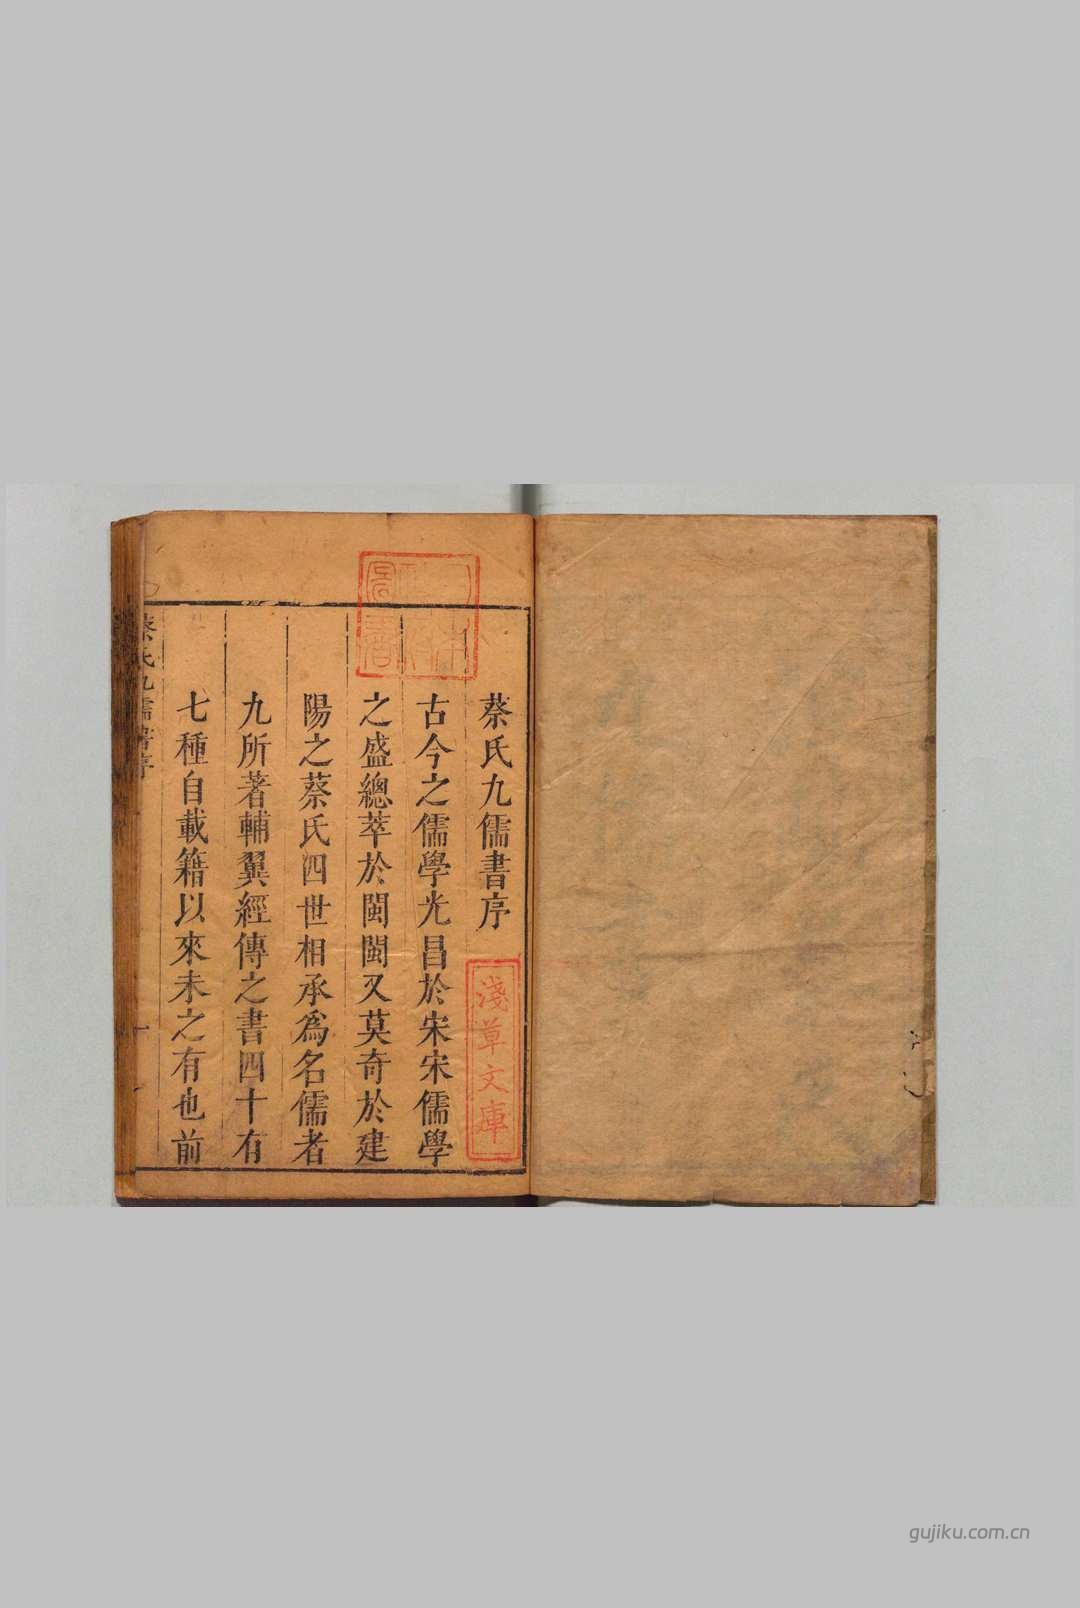 蔡氏九儒書序
古今之儒學光昌於宋宋儒學
之盛總萃於閩閩又莫奇於建
陽之蔡氏四世相承爲名儒者
九所著輔翼經傳之書四十有
七種自載籍以來未之有也前
蔡氏九儒書序
淺草文庫
gujiku.com.cn